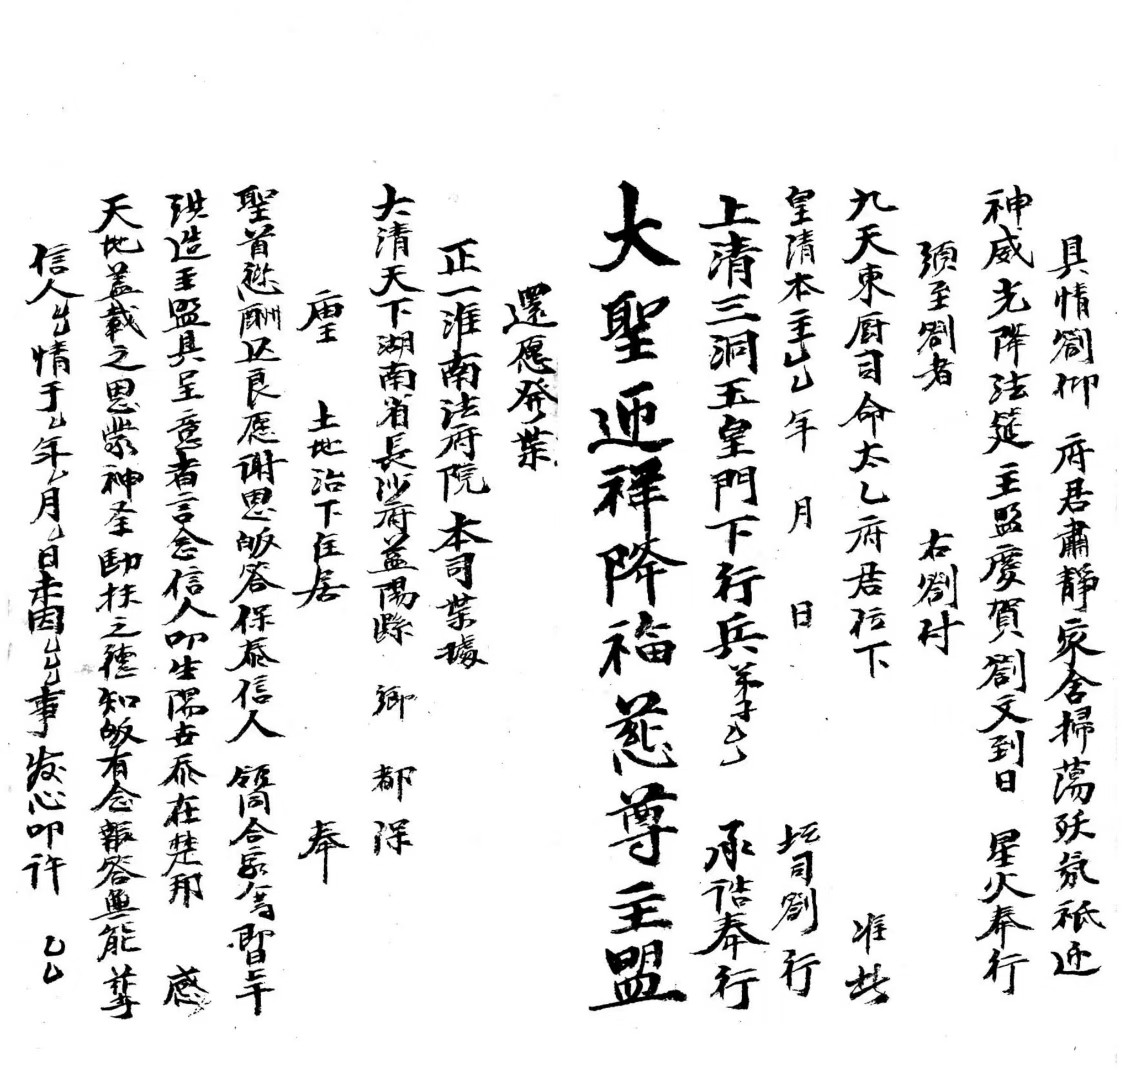 具情劄仰 府君肅靜家舍掃蕩妖氛祇迎
神威光降法筵主盟慶賀劄文到日 星火奉行
須至劄者 右劄付
九天東厨司命太乙府君位下 准此
皇清本主乙乙年 月 日 坛司劄行
上清三洞玉皇門下行兵弟子乙乙 承誥奉行
大聖迎祥降福慈尊主盟
還愿発業
正一淮南法府院 本司業據
大清天下湖南省長沙府益陽縣 鄉 都 保
庙王 土地治下住居 奉
聖首愆酬怂良愿谢恩皈答保泰信人 領同合家人等 即日上干
洪造主盟具呈意者言念信人叩生陽世忝在楚邦 感
天地盖載之恩蒙神圣助扶之德知皈有念報答無能 華
信人乞情于乙年乙月乙日未因乙乙事发心叩许 乙乙